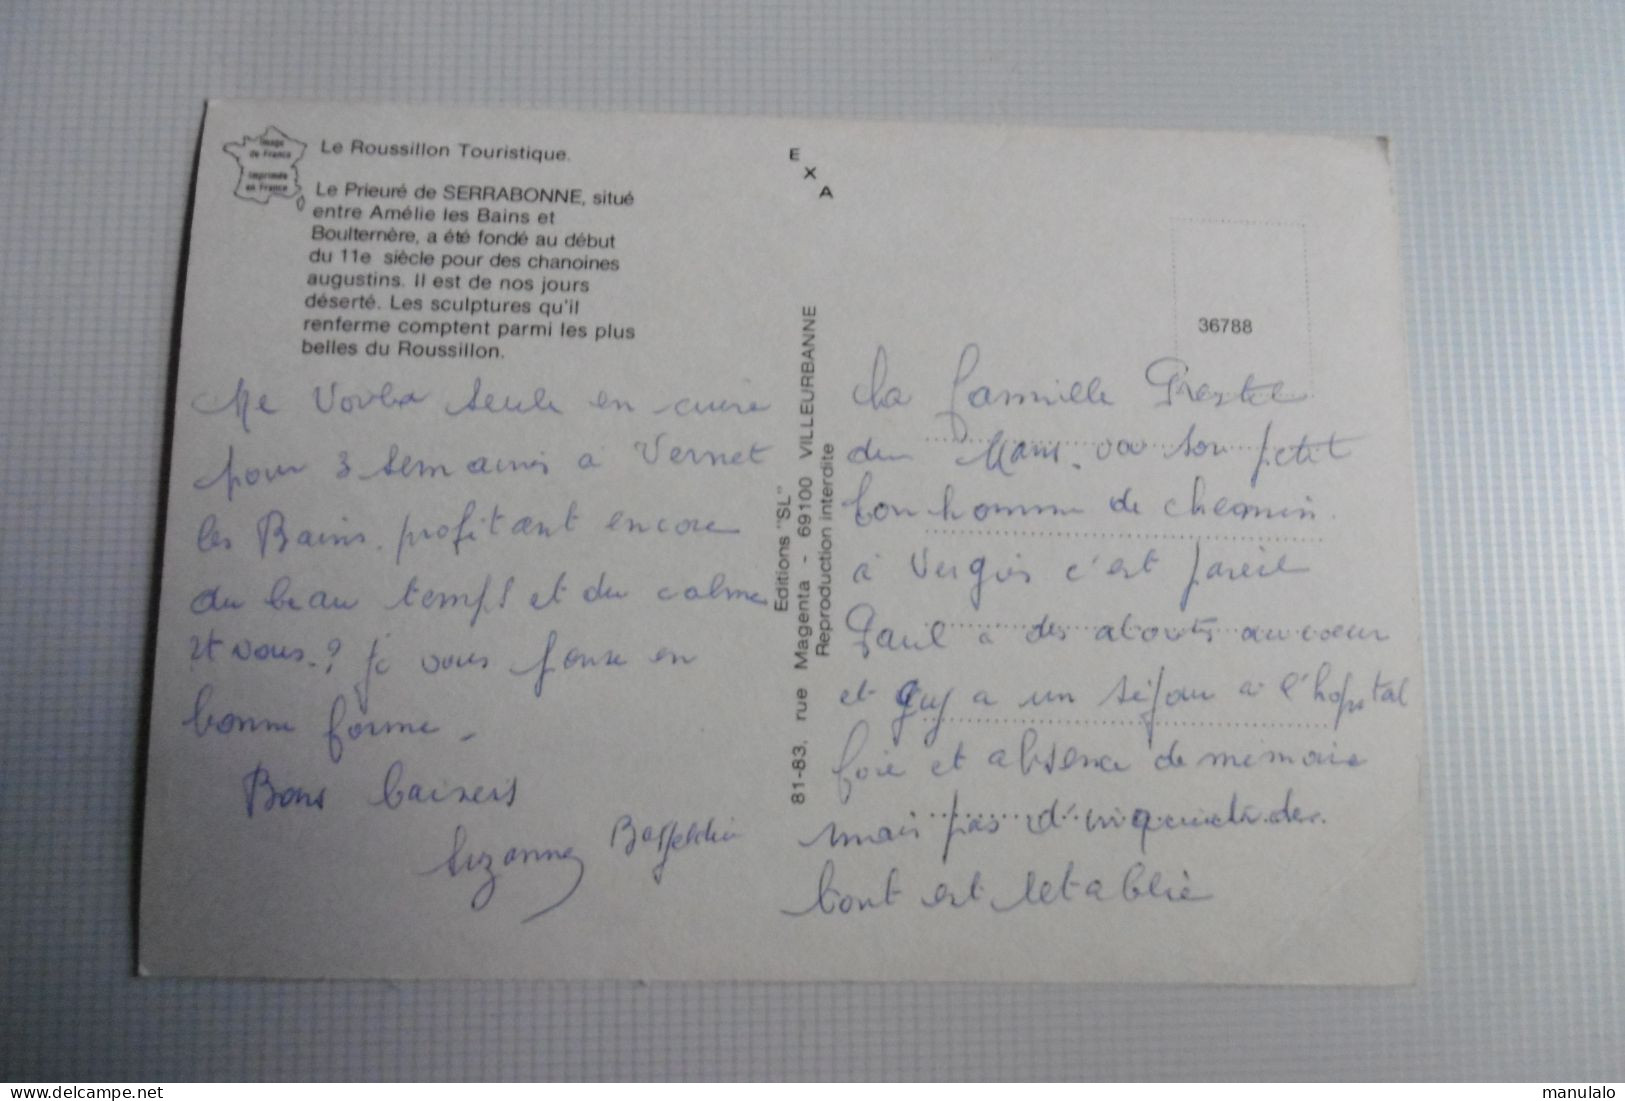 Image
de France
imprimée
en France
Le Roussillon Touristique.
Le Prieuré de SERRABONNE, situé
entre Amélie les Bains et
Boulternère, a été fondé au début
du 11e siècle pour des chanoines
augustins. Il est de nos jours
déserté. Les sculptures qu'il
renferme comptent parmi les plus
belles du Roussillon.
Me Voila seule en cure
pour 3 semaines à Vernet
les Bains. profitant encore
du beau temps et du calme
Et vous.? Je vous pense en
bonne forme.
Bons baisers
Suzanne
E
X
A
Editions "SL"
81-83, rue Magenta - 69100 VILLEURBANNE
Reproduction interdite
36788
La famille
du Mans. va son petit
bonhomme de chemin.
à c'est pareil
Paul a des au coeur
et Guy a un séjour à l'hopital
foie et absence de mémoire
mais pas d'inquietude.
tout est retablie
manulalo